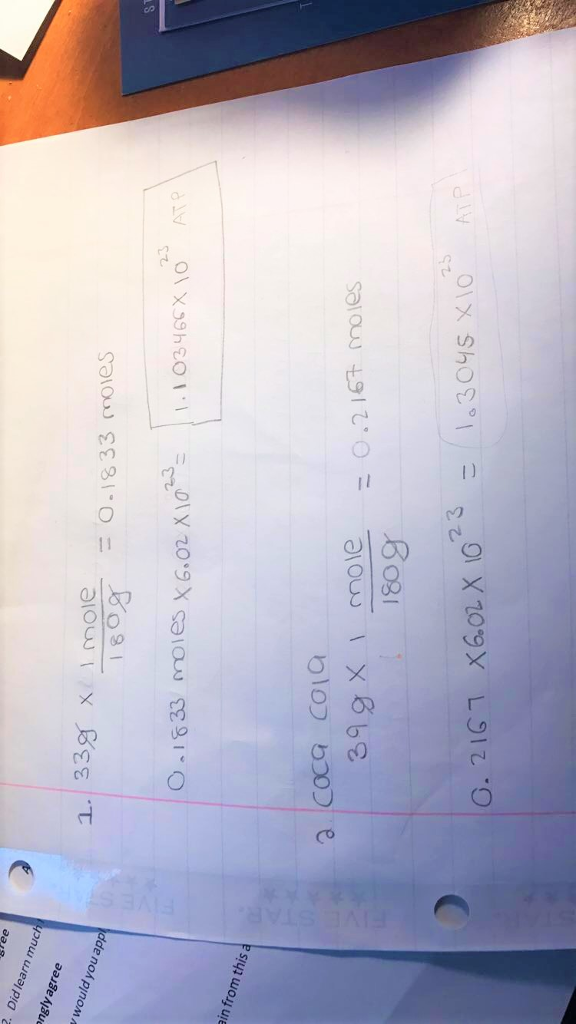 1. 33g x 1 mole
180g
= 0.1833 moles
0.1833 moles x 6.02 x 10^23 = 1.103466 x 10^23 ATP
2. coca cola
39g x 1 mole
180g
= 0.2167 moles
0.2167 x 6.02 x 10^23 = 1.3045 x 10^23 ATP
FIVE STAR.
FIVE STAR.
STAR.
gree
2. Did learn much
ngly agree
would you appl
ain from this a